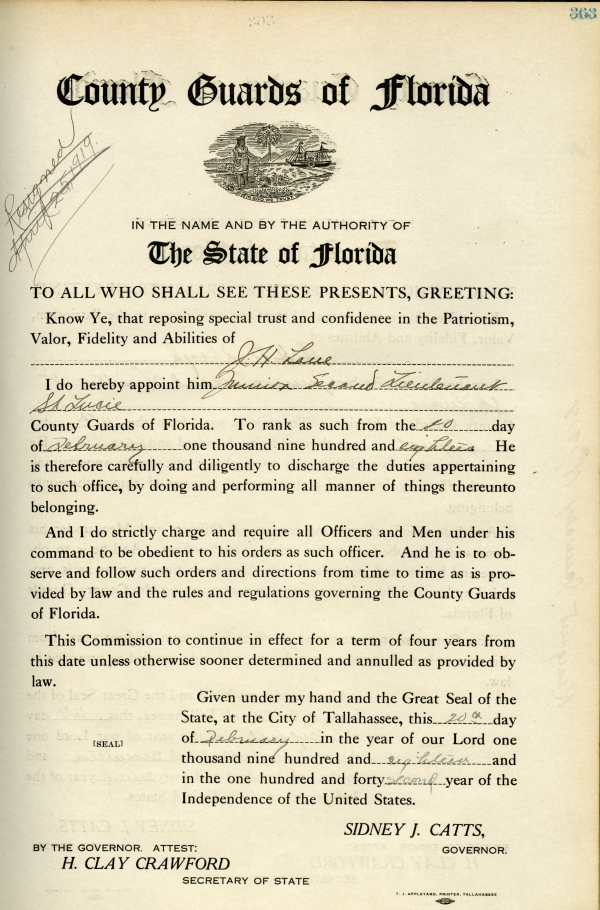 363
County Guards of Florida
Resigned
April 25, 1919.
IN THE NAME AND BY THE AUTHORITY OF
The State of Florida
TO ALL WHO SHALL SEE THESE PRESENTS, GREETING:
Know Ye, that reposing special trust and confidenee in the Patriotism,
Valor, Fidelity and Abilities of
J. H. Lane
I do hereby appoint him Junior Second Lieutenant
St Lucie
County Guards of Florida. To rank as such from the 20 day
of February one thousand nine hundred and eighteen He
is therefore carefully and diligently to discharge the duties appertaining
to such office, by doing and performing all manner of things thereunto
belonging.
And I do strictly charge and require all Officers and Men under his
command to be obedient to his orders as such officer. And he is to ob-
serve and follow such orders and directions from time to time as is pro-
vided by law and the rules and regulations governing the County Guards
of Florida.
This Commission to continue in effect for a term of four years from
this date unless otherwise sooner determined and annulled as provided by
law.
Given under my hand and the Great Seal of the
State, at the City of Tallahassee, this 20th day
of February in the year of our Lord one
[SEAL]
thousand nine hundred and eighteen and
in the one hundred and forty second year of the
Independence of the United States.
SIDNEY J. CATTS,
GOVERNOR.
BY THE GOVERNOR. ATTEST:
H. CLAY CRAWFORD
SECRETARY OF STATE
T. J. APPLEYARD, PRINTER, TALLAHASSEE